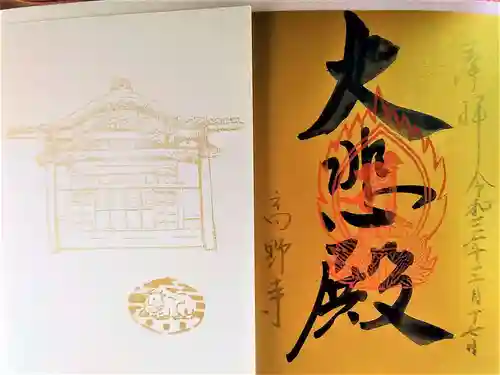 奉拝 令和三年三月十七日
大悲殿
高野寺